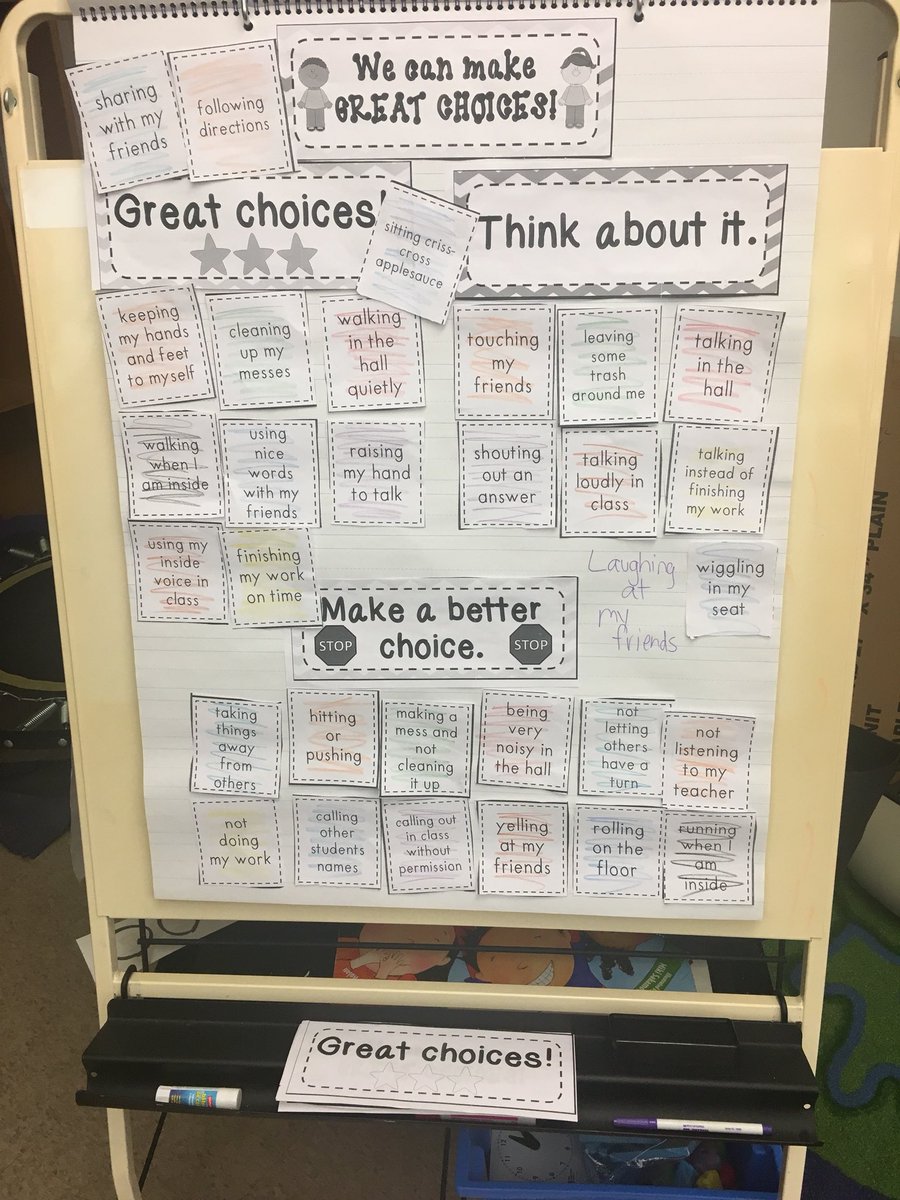 We can make
GREAT CHOICES!
sharing
with my
friends
following
directions
Great choices!
sitting criss-
cross
applesauce
Think about it.
keeping
my hands
and feet
to myself
cleaning
up my
messes
walking
in the
hall
quietly
touching
my
friends
leaving
some
trash
around me
talking
in the
hall
walking
when I
am inside
using
nice
words
with my
friends
raising
my hand
to talk
shouting
out an
answer
talking
loudly in
class
talking
instead of
finishing
my work
using my
inside
voice in
class
finishing
my work
on time
Laughing
at
my
friends
wiggling
in my
seat
Make a better
choice.
STOP
STOP
taking
things
away
from
others
hitting
or
pushing
making a
mess and
not
cleaning
it up
being
very
noisy in
the hall
not
letting
others
have a
turn
not
listening
to my
teacher
not
doing
my work
calling
other
students
names
calling out
in class
without
permission
yelling
at my
friends
rolling
on the
floor
running
when I
am
inside
Great choices!
PLAIN